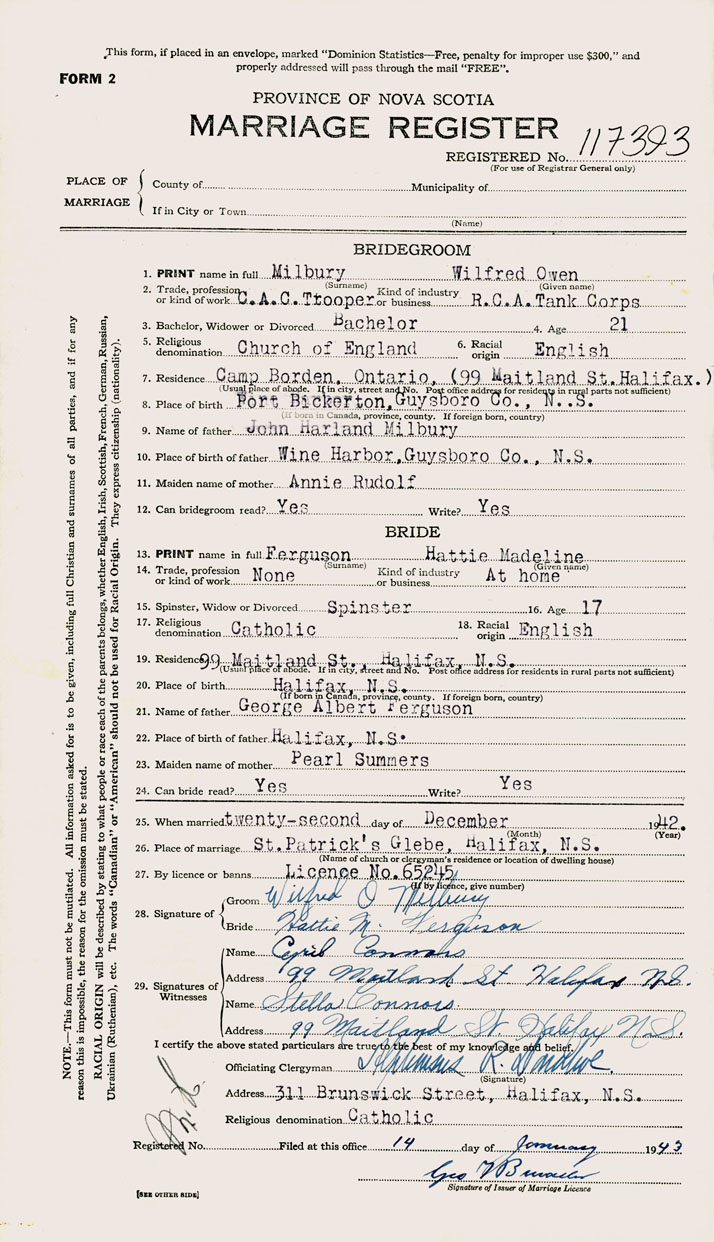 This form, if placed in an envelope, marked "Dominion Statistics—Free, penalty for improper use $300," and
properly addressed will pass through the mail "FREE".
FORM 2
PROVINCE OF NOVA SCOTIA
MARRIAGE REGISTER
REGISTERED No. 117393
(For use of Registrar General only)
PLACE OF MARRIAGE
County of Municipality of
If in City or Town
(Name)
BRIDEGROOM
1. PRINT name in full Milbury Wilfred Owen
(Surname) (Given name)
2. Trade, profession or kind of work C.A.C.Ttooper Kind of industry or business R.C.A.Tank Corps
3. Bachelor, Widower or Divorced Bachelor 4. Age 21
5. Religious denomination Church of England 6. Racial origin English
7. Residence Camp Borden, Ontario, (99 Maitland St.Halifax.)
(Usual place of abode. If in city, street and No. Post office address for residents in rural parts not sufficient)
8. Place of birth Port Bickerton,Guysboro Co., N..S.
(If born in Canada, province, county. If foreign born, country)
9. Name of father John Harland Milbury
10. Place of birth of father Wine Harbor,Guysboro Co., N.S.
11. Maiden name of mother Annie Rudolf
12. Can bridegroom read? Yes Write? Yes
BRIDE
13. PRINT name in full Ferguson Hattie Madeline
(Surname) (Given name)
14. Trade, profession or kind of work None Kind of industry or business At home
15. Spinster, Widow or Divorced Spinster 16. Age 17
17. Religious denomination Catholic 18. Racial origin English
19. Residence 99 Maitland St., Halifax, N.S.
(Usual place of abode. If in city, street and No. Post office address for residents in rural parts not sufficient)
20. Place of birth Halifax, N.S.
(If born in Canada, province, county. If foreign born, country)
21. Name of father George Albert Ferguson
22. Place of birth of father Halifax, N.S.
23. Maiden name of mother Pearl Summers
24. Can bride read? Yes Write? Yes
25. When married twenty-second day of December 1942.
(Month) (Year)
26. Place of marriage St.Patrick's Glebe, Halifax, N.S.
(Name of church or clergyman's residence or location of dwelling house)
27. By licence or banns Licence No.65245
(If by licence, give number)
28. Signature of
Groom Wilfred O Milbury
Bride Hattie M. Ferguson
29. Signatures of Witnesses
Name Cyril Connors
Address 99 Maitland St Halifax N.S.
Name Stella Connors
Address 99 Maitland St Halifax N.S.
I certify the above stated particulars are true to the best of my knowledge and belief.
Officiating Clergyman R.
(Signature)
Address 311 Brunswick Street, Halifax, N.S.
Religious denomination Catholic
Registered No. Filed at this office 14 day of January 1943
Geo
Signature of Issuer of Marriage Licence
[SEE OTHER SIDE]
NOTE.—This form must not be mutilated. All information asked for is to be given, including full Christian and surnames of all parties, and if for any
reason this is impossible, the reason for the omission must be stated.
RACIAL ORIGIN will be described by stating to what people or race each of the parents belongs, whether English, Irish, Scottish, French, German, Russian,
Ukrainian (Ruthenian), etc. The words "Canadian" or "American" should not be used for Racial Origin. They express citizenship (nationality).